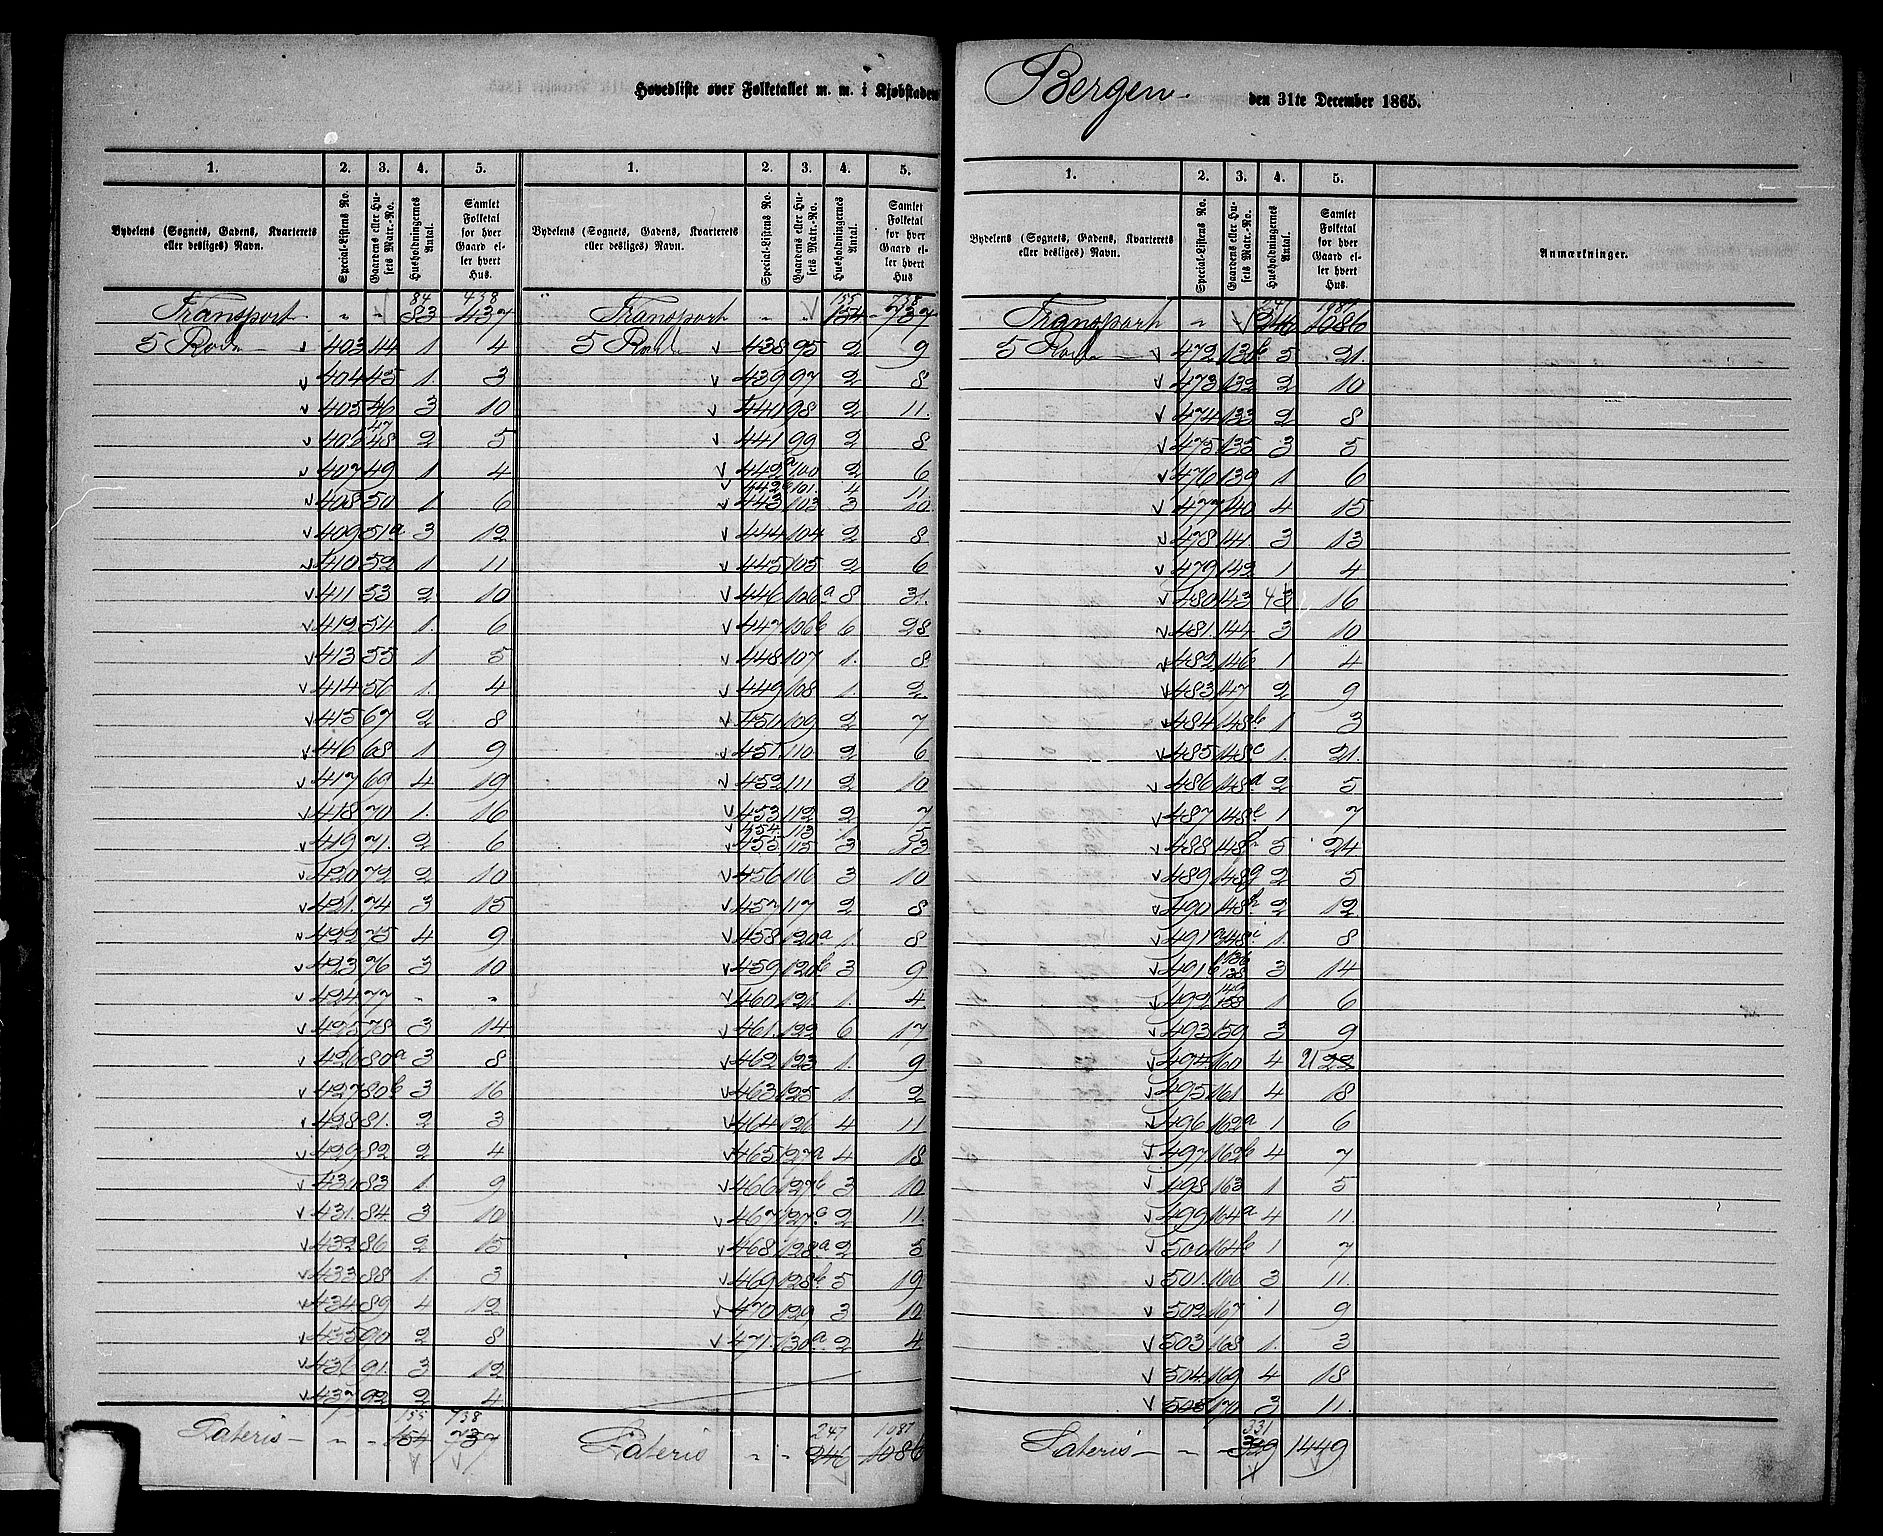 Hovedliste over Folketallet m. m. i Kjøbstaden Bergen den 31te December 1865.
1. 2. 3. 4. 5. 1. 2. 3. 4. 5.
Bydelens (Sognets, Gadens, Kvarterets eller desliges) Navn. Special-Listens No. Gaardens eller Husets Matr.-No. Husholdningernes Antal. Samlet Folketal for hver Gaard eller hvert Hus.
84 438
Transport „ „ 83 437
5 Rode v 403 44 1 4
v 404 45 1. 3
v 405 46 3 10
v 406 47 48 2 5
v 407 49 1 4
v 408 50 1 6
v 409 51a 3 12
v 410 52 1 11
v 411 53 2 10
v 412 54 1. 6
v 413 55 1 5
v 414 56 1. 4
v 415 67 2 8
v 416 68 1 9
v 417 69 4 19
v 418 70 1. 16
v 419 71. 2 6
v 420 72 2 10
v 421. 74 3 15
v 422 75 4 9
v 423 76 3 10
v 424 77 „ „
v 425 78 3 14
v 426 80a 3 8
v 427 80b 3 16
v 428 81. 2 3
v 429 82 2 4
v 430 83 1 9
v 431. 84. 3 10
v 432 86 2 15
v 433 88 1. 3
v 434 89 4 12
v 435 90 2 8
v 436 91. 3 12
v 437 92 2 4
155 738
Lateris „ „ 154 737
Bydelens (Sognets, Gadens, Kvarterets eller desliges) Navn. Special-Listens No. Gaardens eller Husets Matr.-No. Husholdningernes Antal. Samlet Folketal for hver Gaard eller hvert Hus.
155 738
Transport „ „ 154 737
5 Rode v 438 95 2 9
v 439 97 2 8
v 440 98 2 11.
v 441 99 2 8
v 442a 100 2 6
v 442b 101. 4 11
v 443 103 3 10
v 444 104 2 8
v 445 105 2 6
v 446 106a 8 31.
v 447 106b 6 28
v 448 107 1. 8
v 449 108 1. 2
v 450 109 2 7
v 451 110 2 6
v 452 111 2 10
v 453 112 2 7
v 454 113 1 5
v 455 115 3 13
v 456 116 3 10
v 457 117 2 8
v 458 120a 1. 8
v 459 120b 3 9
v 460 121. 1. 4
v 461. 122 6 17
v 462 123 1. 9
v 463 125 1. 2
v 464 126 4 11
v 465 127a 4 18
v 466 127b 3 10
v 467 127c 2 11.
v 468 128a 2 5
v 469 128b 5 19
v 470 129 3 12
v 471. 130a 2 4
247 1087
Lateris „ „ 246 1086
1. 2. 3. 4. 5.
Bydelens (Sognets, Gadens, Kvarterets eller desliges) Navn. Special-Listens No. Gaardens eller Husets Matr.-No. Husholdningernes Antal. Samlet Folketal for hver Gaard eller hvert Hus. Anmærkninger.
247 1087
Transport „ „ 246 1086
5 Rode v 472 130b 5 21.
v 473 132 2 10
v 474 133 2 8
v 475 135 3 5
v 476 139 1 6
v 477 140 4 15
v 478 141. 3 13
v 479 142 1 4
v 480 143 4 3 16
v 481. 144 3 10
v 482 146 1 4
v 483 147 2 9
v 484 148b 1 3
v 485 148c 1. 21.
v 486 148d 2 5
v 487 148e 1 7
v 488 148f 5 24
v 489 148g 2 5
v 490 148h 2 12
v 491a 148i 1. 8
v 491b 136 138 3 14
v 492 149 158 1 6
v 493 159 3 9
v 494 160 4 21 22
v 495 161 4 18
v 496 162a 1 6
v 497 162b 4 7
v 498 163 1 5
v 499 164a 4 11.
v 500 164b 1 7
v 501. 166 3 11.
v 502 167 1 9
v 503 168 1. 3
v 504 169 4 18
v 505 170 3 11.
331
Lateris „ „ 329 1449